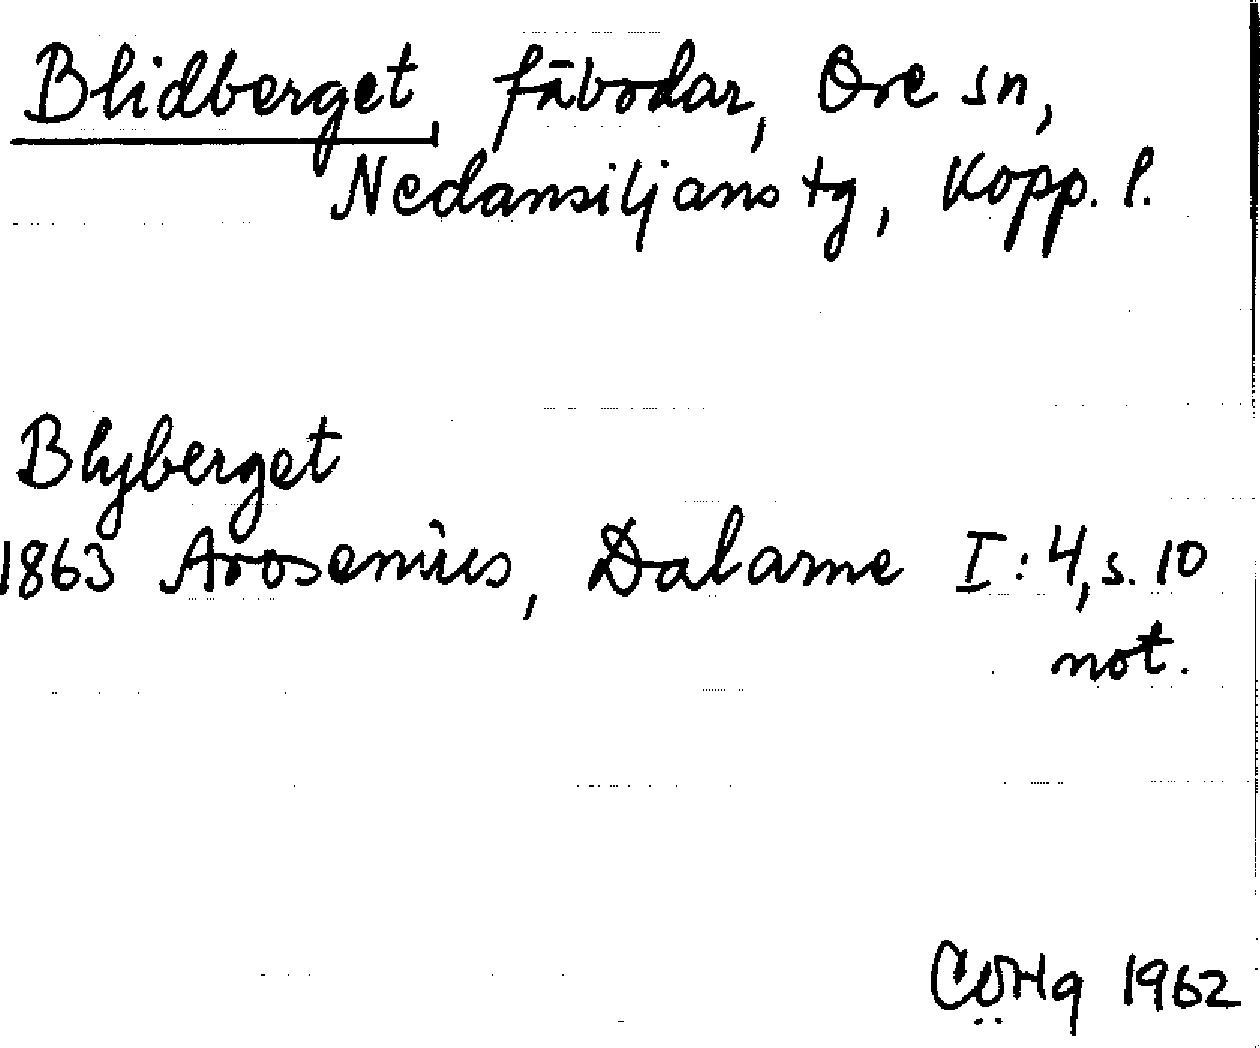 Blidberget, fäbodar, Ore sn,
Nedansiljans tg, Kopp. l.
Blyberget
1863 Arosenius, Dalarne I:4, s. 10
not.
1962